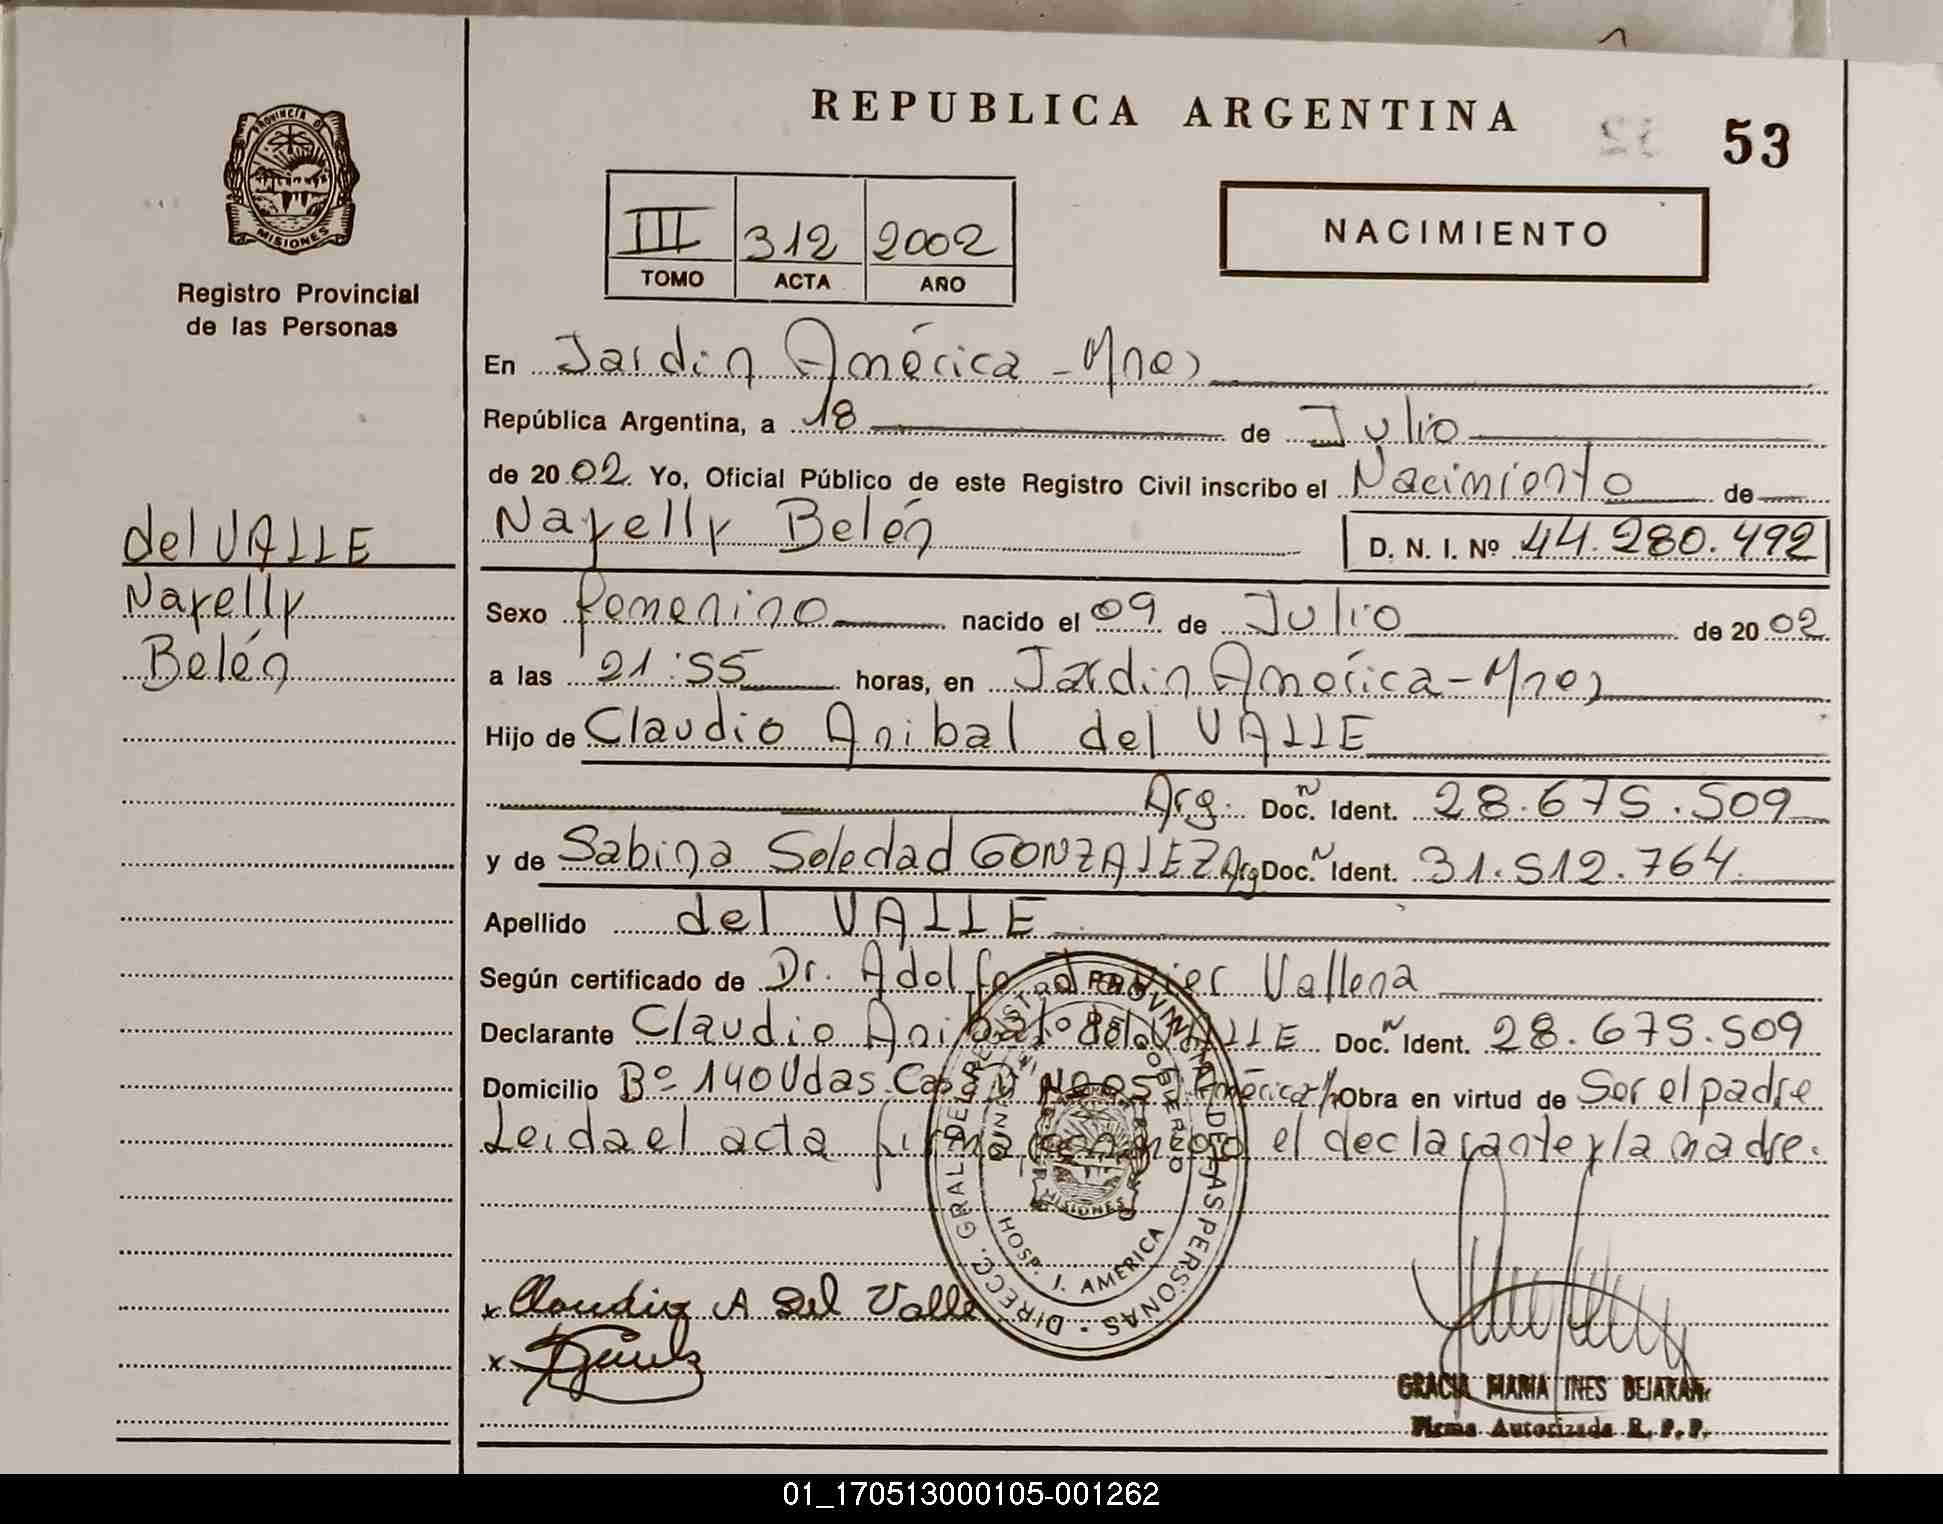 REPUBLICA ARGENTINA
53
PROVINCIA DE
MISIONES
Registro Provincial
de las Personas
III 312 2002
TOMO ACTA AÑO
NACIMIENTO
En Jardin América - Mnes
República Argentina, a 18 de Julio
de 2002. Yo, Oficial Público de este Registro Civil inscribo el Nacimiento de
Nayelly Belén D. N. I. Nº 44.280.492
del VALLE
Nayelly
Belén
Sexo femenino nacido el 09 de Julio de 2002
a las 21:55 horas, en Jardin América - Mnes
Hijo de Claudio Anibal del VALLE
Arg. Doc. N Ident. 28.675.509
y de Sabina Soledad GONZALEZ Arg Doc. N Ident. 31.512.764
Apellido del VALLE
Según certificado de Dr. Adolfo Javier Vallena
Declarante Claudio Anibal del VALLE Doc. N Ident. 28.675.509
Domicilio Bº 140 Udas. Casa América Obra en virtud de Ser el padre
Leida el acta firma el declarante y la madre.
DIRECC. GRAL. DEL REGISTRO PROVINCIAL DE LAS PERSONAS
HOSP. J. AMERICA
MISIONES
x Claudio A Del Valle
x
GRACIA MARIA INES BEJARAN
Firma Autorizada R. P. P.
01_170513000105-001262